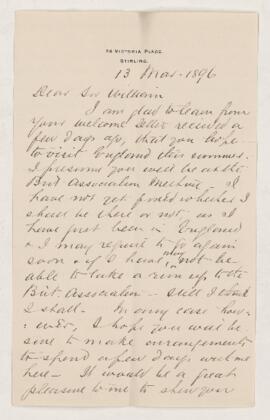 VICTORIA PLACE,
STIRLING.
13 Mar. 1896
Dear Sir William
I am glad to learn from
your welcome letter received a
few days ago, that you hope
to visit England this summer.
I presume you will be at the
Brit Association Meeting - I
have not yet fixed whether I
shall be there or not, as I
have just been in England
& I may require to go again
soon & if I have, may not be
able to take a run up to the
Brit. Association - still I think
I shall - In any case how-
ever, I hope you will be
sure to make arrangements
to spend a few days with me
here - It would be a great
pleasure to me to shew you